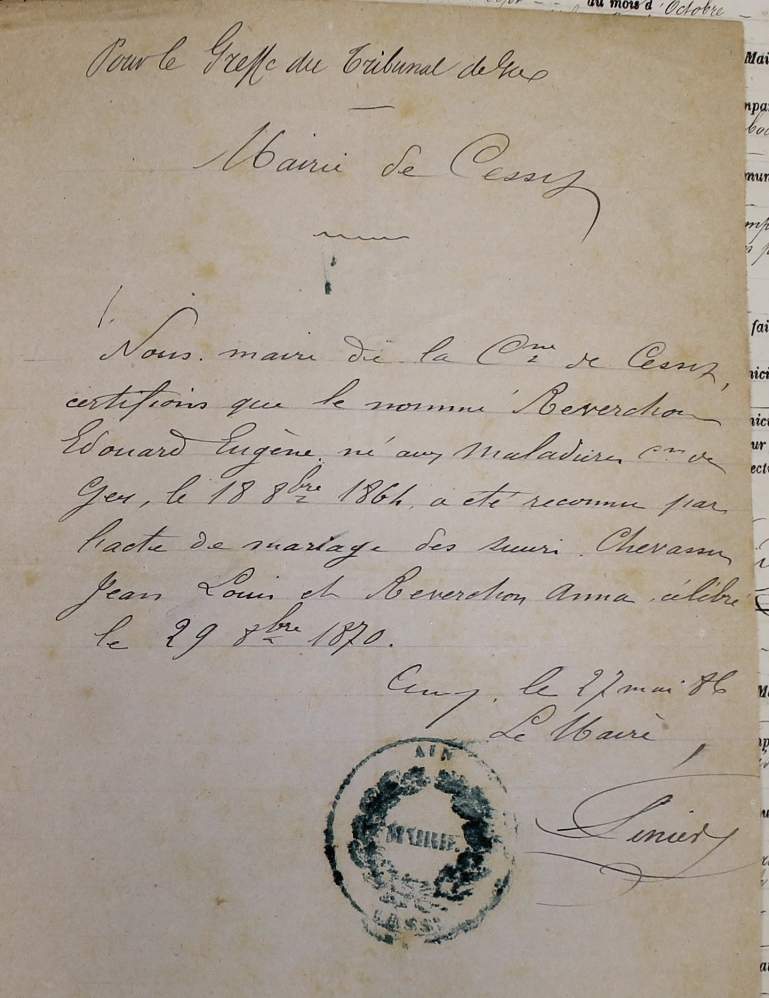 Pour le Greffe du Tribunal de Gex
Mairie de Cessy
Nous. maire de la Cne de Cessy,
certifions que le nommé Reverchon
Edouard Eugène, né aux Maladières cne de
Gex, le 18 8bre 1864, a été reconnu par
l'acte de mariage des sieurs. Chevassu
Jean Louis et Reverchon Anna, célébré
le 29 8bre 1870.
Cessy, le 27 mai 86
Le Maire
AIN
MAIRIE
CESSY
du mois d'Octobre
Mai